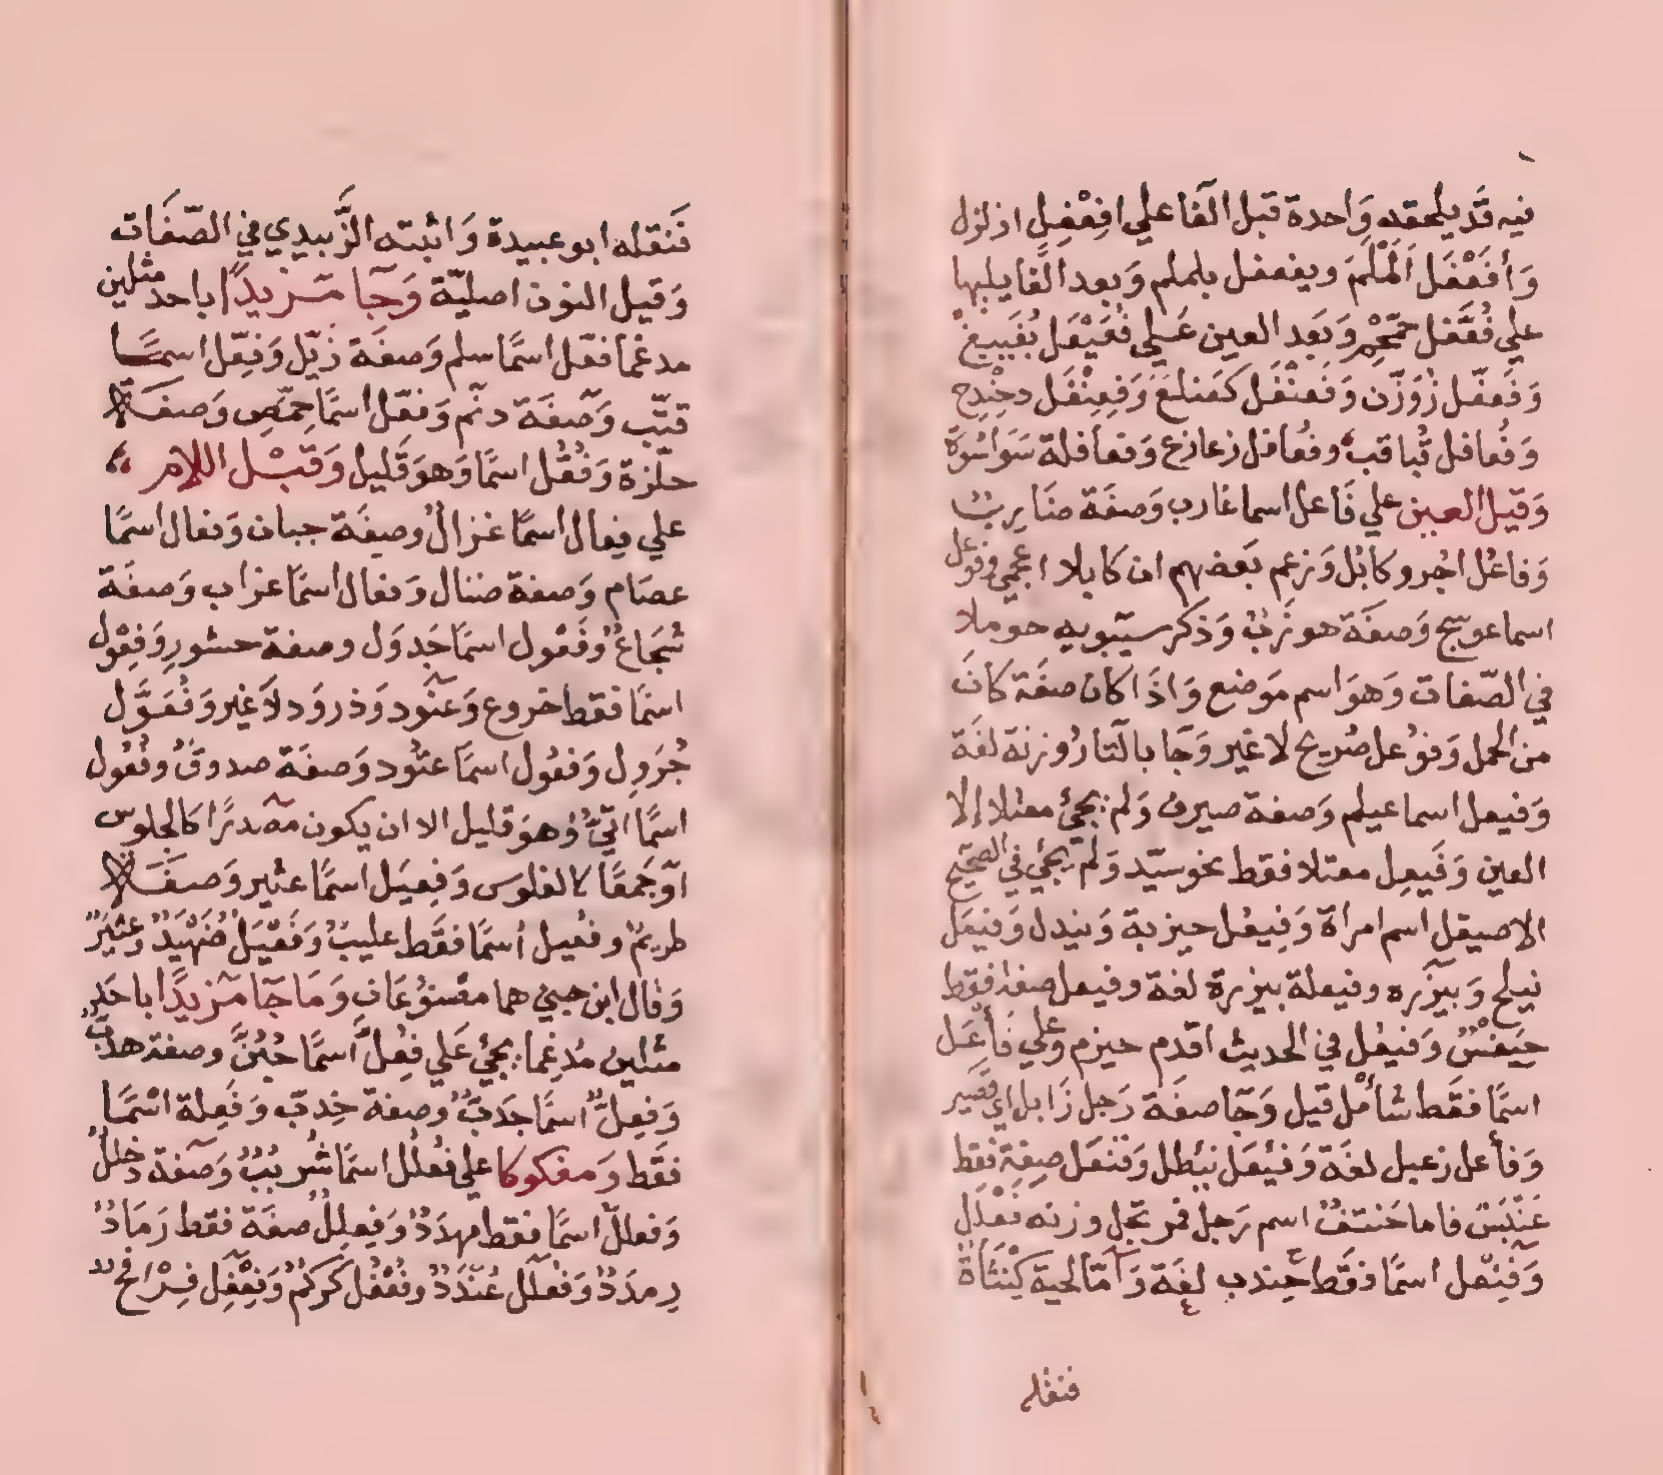 فيه قد يلحقه وَاحدة قبل الفا علي افِعْفِل ازلزل
وَأفَعْفَل اَلَمْلَمَ ويفعفل يلملم وَبعد الفا يليها
علي فُعَّفل وَبَعد العين عَلي فُعَيْعَل
وَفَعفّل زَوَزّن وَفَعنْفَل كعَنلعَ وَفِعِنْفَل دخْنِدِح
وَفُعافل قُباقب وفُعافل زعازع وَفعافلة سَوَاسُوَة
وَقبل العين علي فَاعل اسما غارب وَصفَة ضَارب
وَفاعُل اجُر وكابُل وَزعم بَعضهم ان كابلا اعجمي وفوعل
اسما عوسج وَصفَة هوزَبٌ وَذكر سيبويه حوملا
في الصّفات وَهوَ اسم مَوضع وَاذَا كان صفَة كانَ
من الحمل وَفوْعل صُريح لا غير وَجَا بالتا رُوزنة لغَة
وَفيعل اسما عيلم وَصفة صيرف وَلم يجئ معتلا إلا
العين وَفَيعِل معتلا فقط نحو سيّد وَلم يجئ في الصّحيح
الا صيقل اسم امراة وَفِيعْل حيزبة وَنيدل وَفيعَل
نيلج وَبيزَره وفيعلة بيزرة لغة وفيعل صفة فقط
حِيَفْسٌ وَفيعُل في الحديث اقدم حيزم وعلي فَأعَل
اسمًا فقَط شأمل قيل وَجَا صفَة رَجل زَابل اي قصير
وَفأعل زعبل لغَة وَفيْعَل نيْطل وَفنعَل صِفة فقط
عَنْبَسَ فاما حَنتفٌ اسم رَجل فمرتجل وزنه فعْلَل
وَفِنعَل اسمًا فقَط جِندب لغَة وَأمّا لحية كِنْثَأةٌ
فنقله
فَنقله ابو عبيدة وَاثبته الزَّبيدي في الصّفَات
وَقيل النون اصليّة وَجَا مَزيدًا باحد مثلين
مدغما فعّل اسمًا سلم وَصفَة زيّل وَفِعّل اسمًا
قنّب وَصفَة دنّم وَفعّل اسمًا حِمّصٍ وَصفَة
حلّزة وَفُعُّل اسمًا وَهوَ قَليل وَقَبْل اللام
علي فعال اسمًا غزالٌ وصفَة جبان وَفعال اسمًا
عصَام وَصفة ضنال وَفعال اسمًا غراب وَصفَة
شُجَاعٌ وفَعْول اسمًا جَدوَل وصفة حشور وَفِعْول
اسمًا فقط خروع وَعتود وَذروَد لاَ غير وَفُعَوَّل
جُرَوِل وَفعُول اسمًا عتُود وَصفَة صدوقٌ وفُعُول
اسمًا اتيٌّ وَهوَ قليل الا ان يكون مَصدرًا كالجلوس
اوّ جَمعًا كالفلوس وَفِعيَل اسمًا عثير وَصفَة
طريمٌ وفعْيل اسمًا فقَط عليبٌ وَفَعْيَل ضَهْيَدٌ وعَثيَرٌ
وَقال ابن جني هما مصْنوُعَان وَمَا جَا مَزيدًا باحَدِ
مثلين مُدغما يجئ عَلي فِعُلّ اسمًا جُبُنّ وصفة هدبٌّ
وَفِعلّ اسمًا جدَبٌّ وصفة خِدبّ وَفَعِلة اسْمًا
فقَط وَمفكوكا علي فعْلُل اسمًا شُربُبٌ وَصَفة دُخللٌ
وَفعللّ اسمًا فقط مهدَدٌ وَفِعلِلٌ صفَة فقط رَمَادٌ
رِمدَدٌ وَفعْلَل عُنْدَدٌ وفُعْفُل كُركُمٌ وَفِعْفِل فِرْافخ